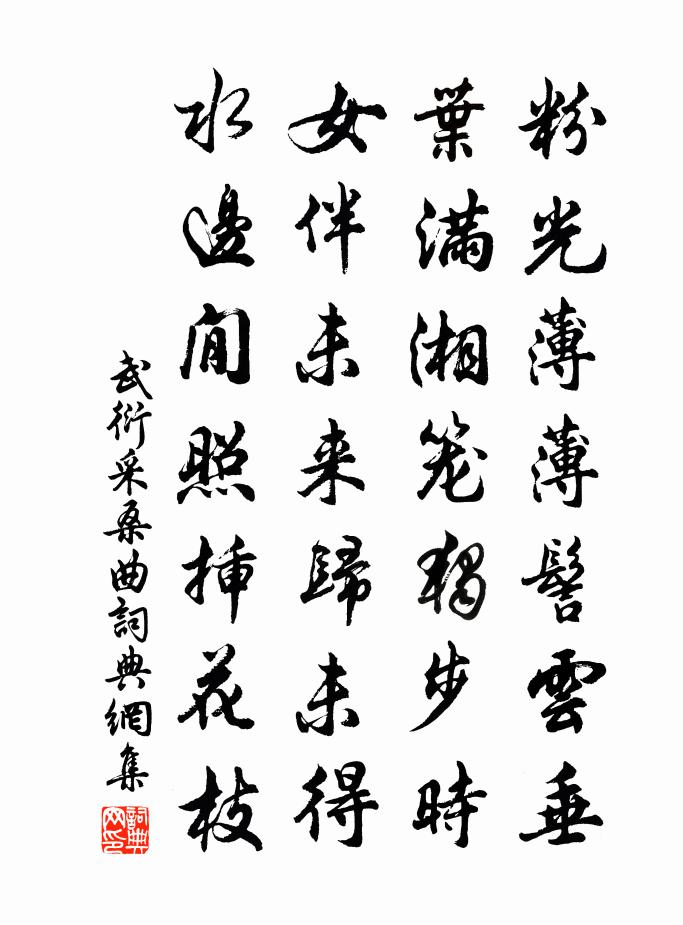 粉光薄薄髻雲垂
葉滿湘笼獨步時
女伴未来歸未得
水邊閒照挿花枝
武衍采桑曲詞典網集
詞典网印